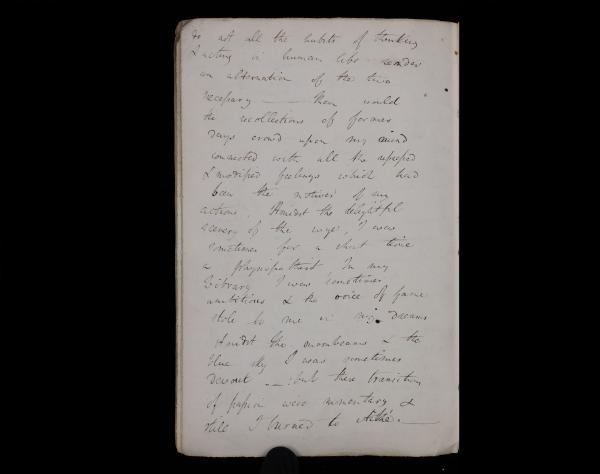 to not all the habits of thinking
& acting in human life render
an alternation of the two
necessary —— then would
the recollections of former
days crowd upon my mind
connected with all the
& modified feelings which had
been the motives of my
actions. Amidst the delightful
scenery of the I was
sometimes for a short time
a In my
library I was sometimes
ambitious & the voice of fame
stole to me in my dreams
Amidst the moonbeams & the
blue sky I was sometimes
devout — : but these transitions
of passion were momentary &
still I turned to